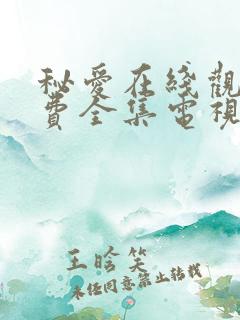 秘愛在綫觀
費全集電視
王晗笑
未经同意禁止转载